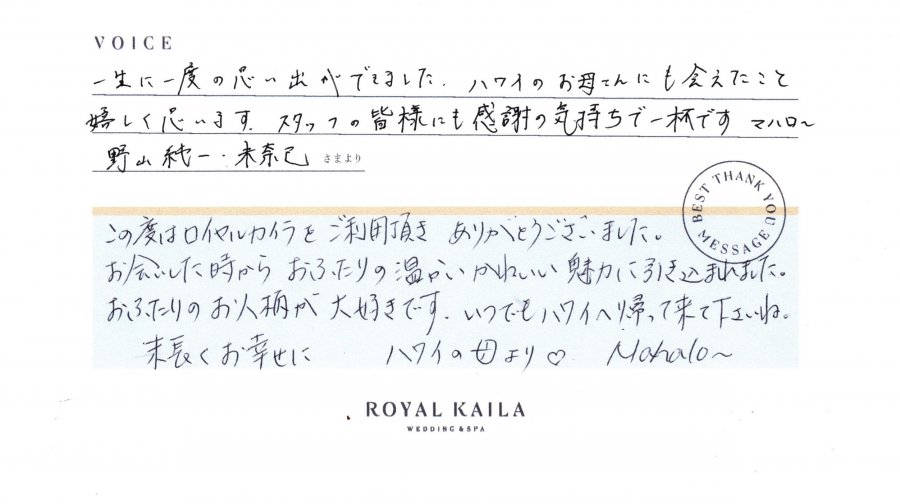 VOICE
一生に一度の思い出ができました. ハワイのお母さんにも会えたこと
嬉しく思います. スタッフの皆様にも感謝の気持ちで一杯です マハロ〜
野山純一・未奈己 さまより
BEST THANK YOU MESSAGE
この度はロイヤルカイラをご利用頂き ありがとうございました。
お会いした時から おふたりの温かい かわいい 魅力に引き込まれました。
おふたりのお人柄が 大好きです. いつでもハワイへ帰って来て下さいね。
末長くお幸せに ハワイの母より♡ Mahalo〜
ROYAL KAILA
WEDDING & SPA